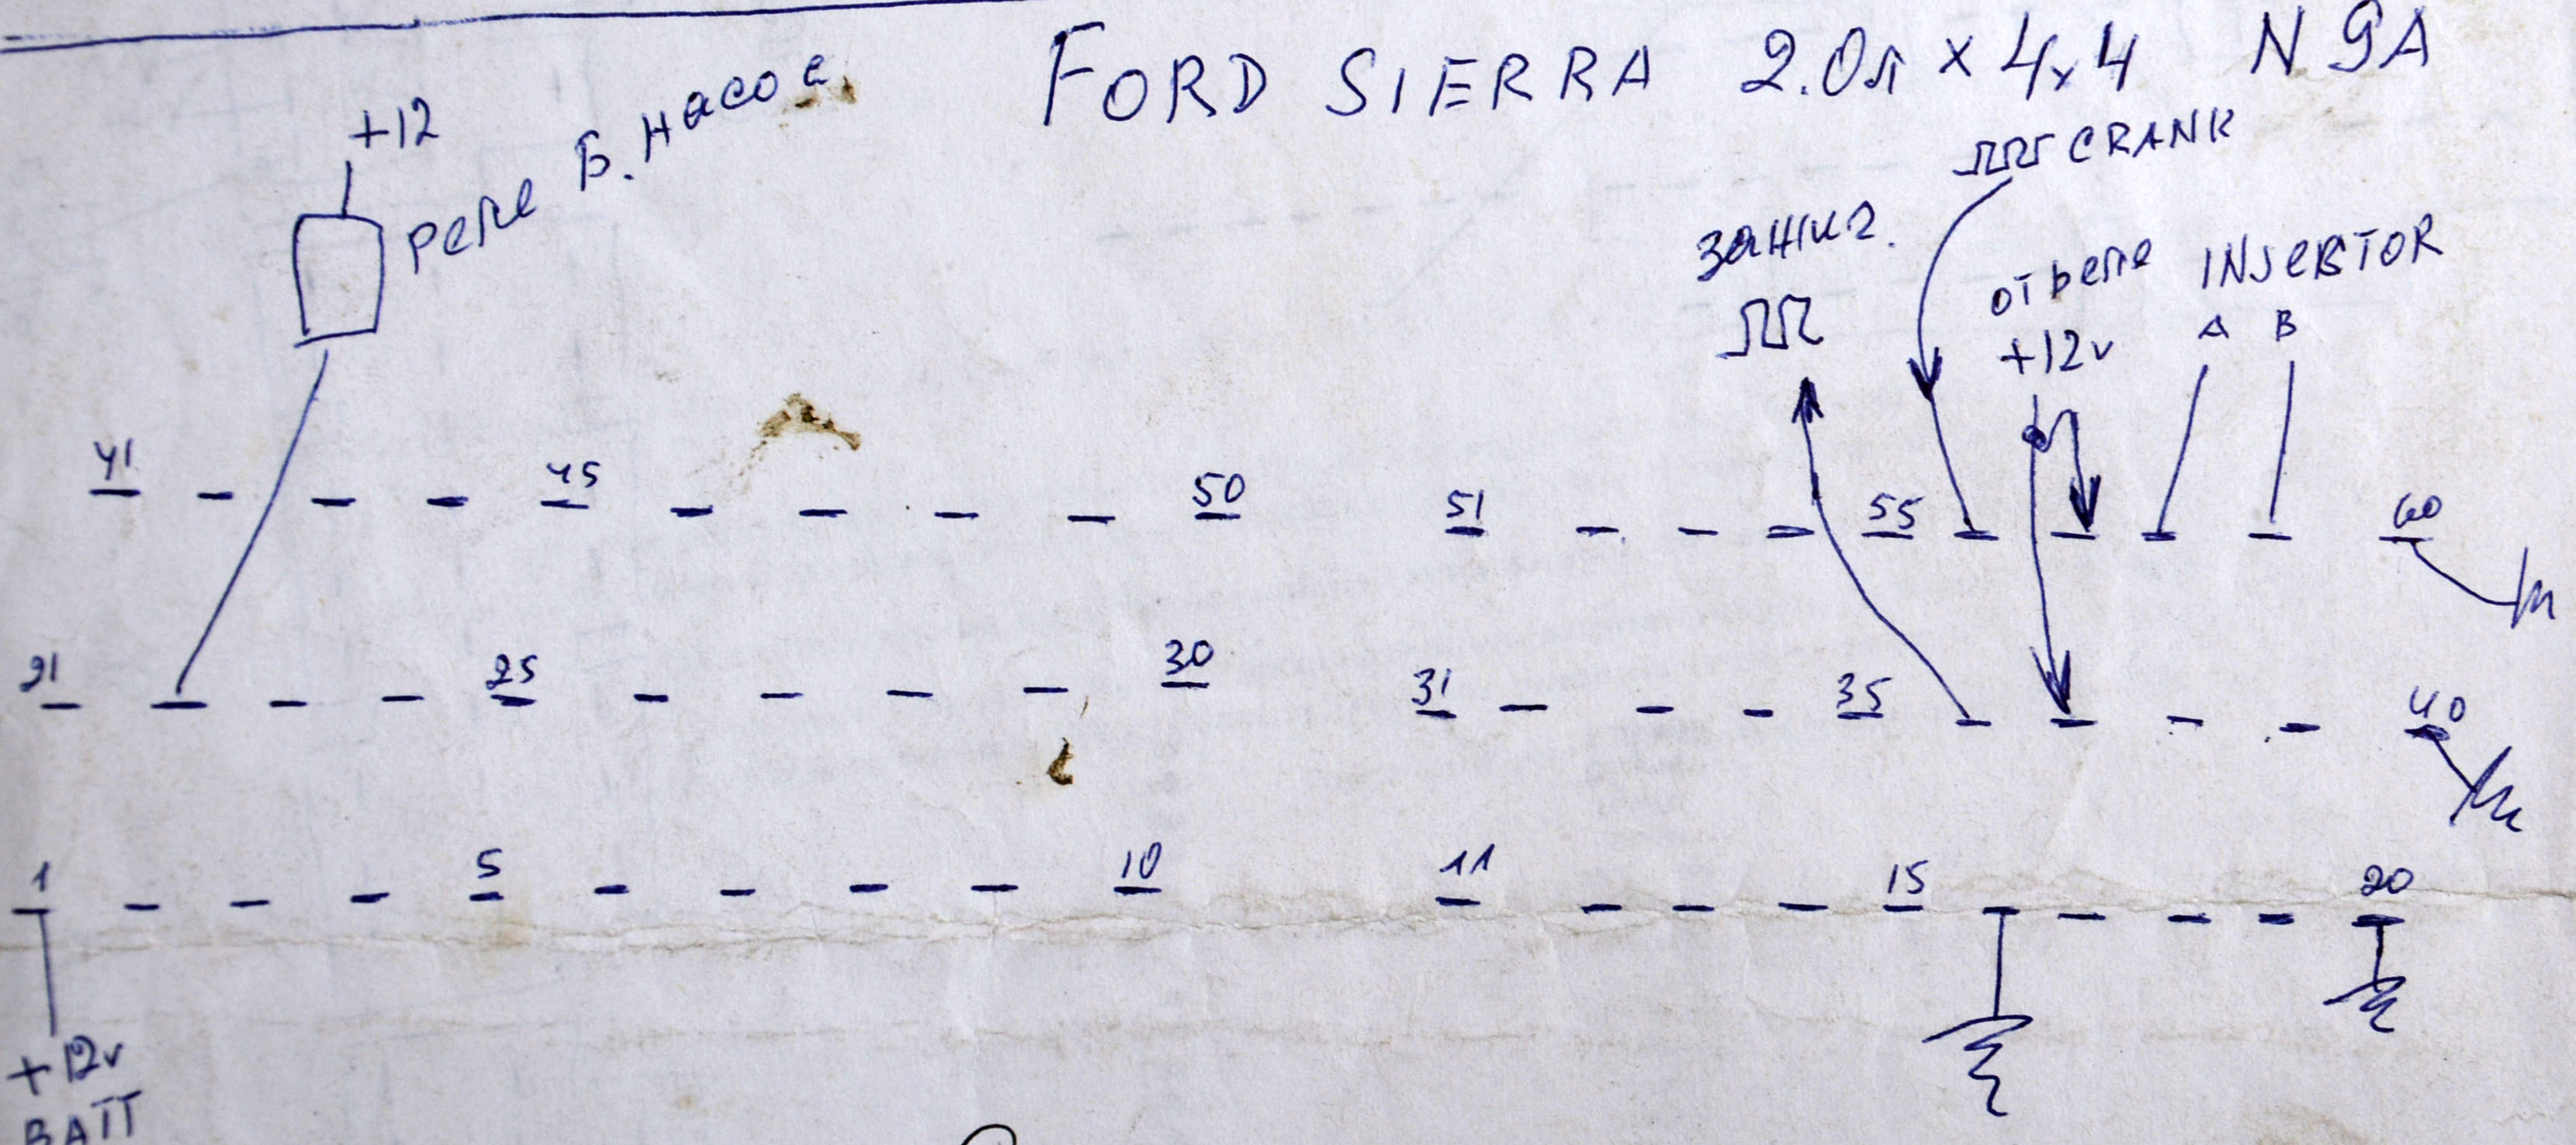 FORD SIERRA 2.0л x 4x4 N9A
+12
реле Б. насос
CRANK
зажиг.
от реле
+12v
INJECTOR
A B
41 45 50 51 55 60
21 25 30 31 35 40
1 5 10 11 15 20
+12v
BATT